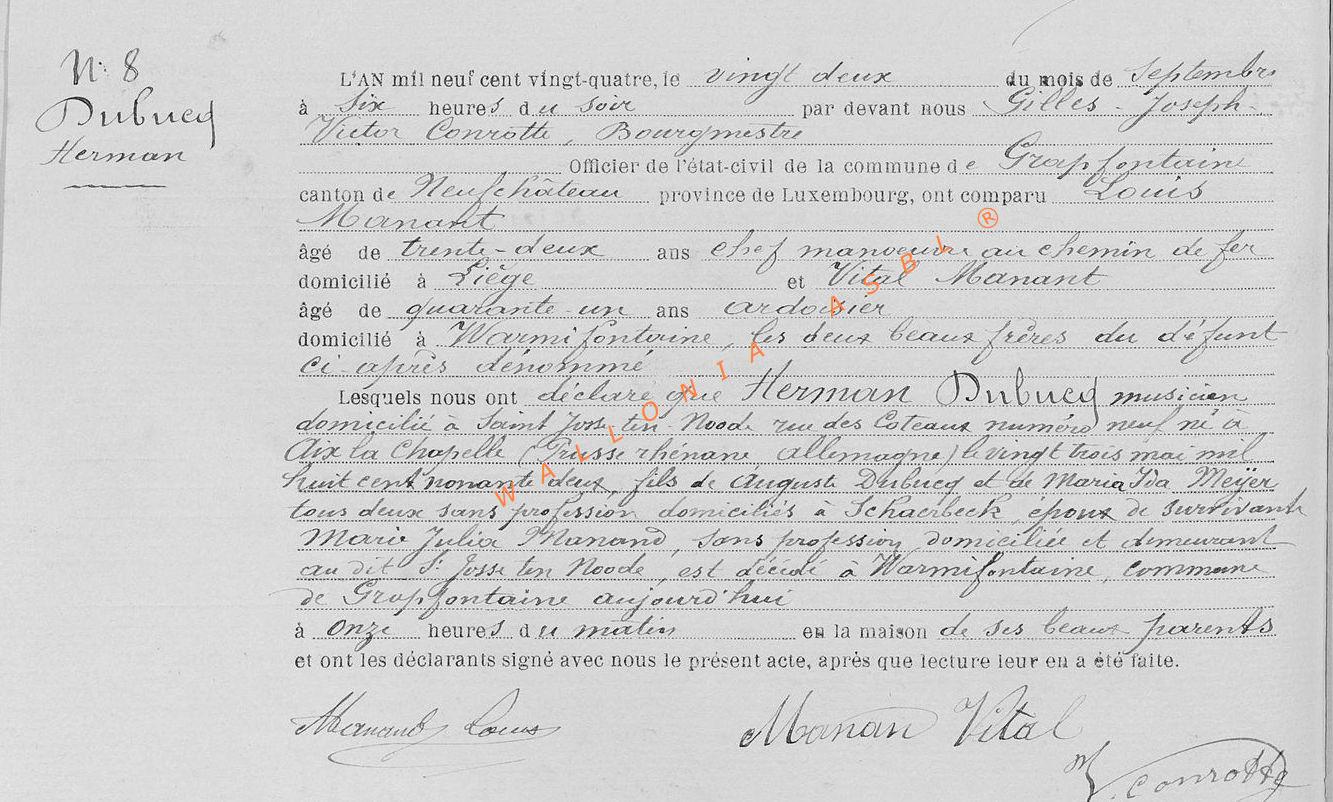 N° 8
Dubucq
Herman
L'AN mil neuf cent vingt-quatre, le vingt deux du mois de Septembre
à six heures du soir par devant nous Gilles-Joseph-
Victor Conrotte, Bourgmestre
Officier de l'état-civil de la commune de Grapfontaine
canton de Neufchâteau province de Luxembourg, ont comparu Louis
Manant
âgé de trente-deux ans chef manoeuvre au chemin de fer
domicilié à Liège et Vital Manant
âgé de quarante-un ans ardoisier
domicilié à Warmifontaine, les deux beaux frères du défunt
ci-après dénommé
Lesquels nous ont déclaré que Herman Dubucq musicien
domicilié à Saint Josse ten Noode rue des Coteaux numéro neuf né à
Aix la Chapelle (Prusse rhénane Allemagne) le vingt trois mai mil
huit cent nonante deux, fils de Auguste Dubucq et de Maria Ida Meÿer
tous deux sans profession domiciliés à Schaerbeck, époux de survivante
Marie Julia Manand, sans profession domiciliée et demeurant
au dit St Josse ten Noode, est décédé à Warmifontaine, commune
de Grapfontaine aujourd'hui
à onze heures du matin en la maison de ses beaux parents
et ont les déclarants signé avec nous le présent acte, après que lecture leur en a été faite.
Manand Louis
Manan Vital
V. Conrotte
WALLONIA ASBL ®